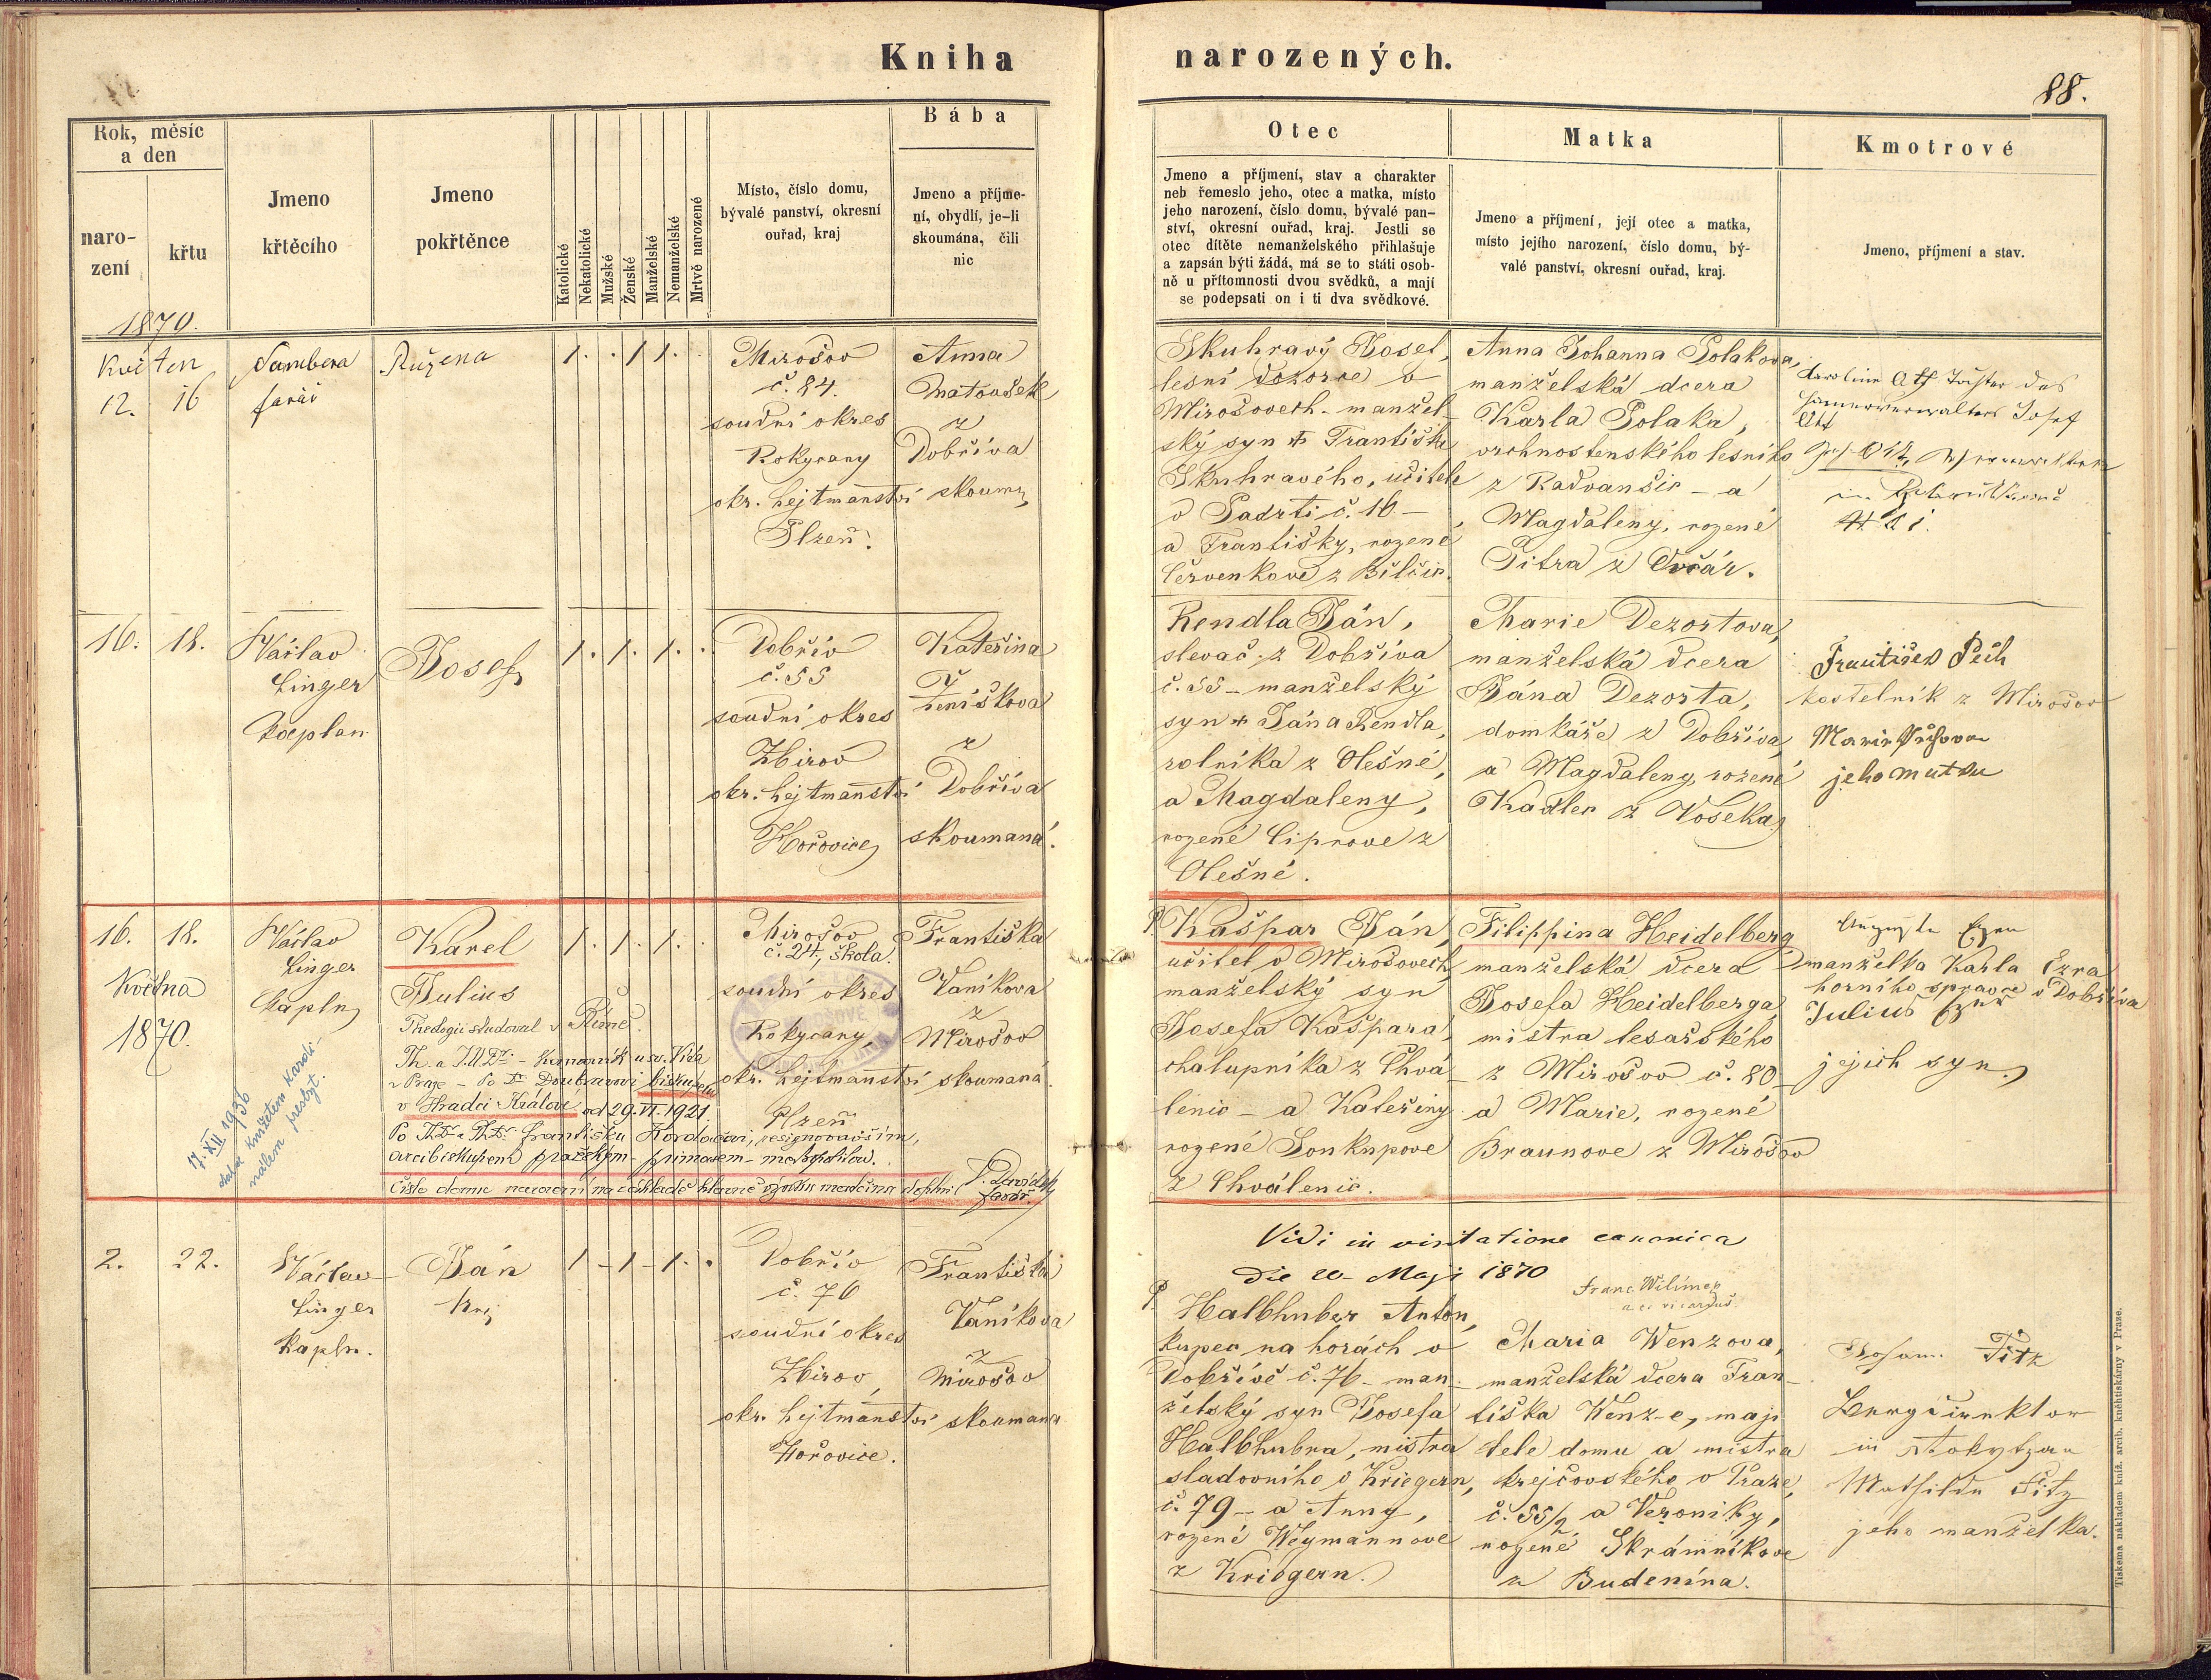 Kniha
narozených.
88.
Rok, měsíc
a den
naro-
zení
křtu
Jmeno
křtěcího
Jmeno
pokřtěnce
Katolické
Nekatolické
Mužské
Ženské
Manželské
Nemanželské
Mrtvě narozené
Místo, číslo domu,
bývalé panství, okresní
ouřad, kraj
Bába
Jmeno a příjme-
ní, obydlí, je-li
skoumána, čili
nic
Otec
Jmeno a příjmení, stav a charakter
neb řemeslo jeho, otec a matka, místo
jeho narození, číslo domu, bývalé pan-
ství, okresní ouřad, kraj. Jestli se
otec dítěte nemanželského přihlašuje
a zapsán býti žádá, má se to státi osob-
ně u přítomnosti dvou svědků, a mají
se podepsati on i ti dva svědkové.
Matka
Jmeno a příjmení, její otec a matka,
místo jejího narození, číslo domu, bý-
valé panství, okresní ouřad, kraj.
Kmotrové
Jmeno, příjmení a stav.
1870.
Květen
12. 16
Sambera
farář
Ružena
1. . 1 1.
Mirošov
č. 84.
soudní okres
Rokycany
okr. hejtmanství
Plzeň.
Anna
Matoušek
z
Dobříva
skoum.
Skuhravý Josef,
lesní dozorce v
Mirošovech - manžel-
ský syn Františka
Skuhravého, učitele
v Padrti č. 16 -
a Františky, rozené
Červenkove z
Anna Johanna Polakova,
manželská dcera
Karla Polaka,
vrchnostenského lesního
z Radvanšic - a
Magdaleny, rozené
Pitra z Ovčár.
Josef
16. 18.
Václav
Linger
kaplan
Josef
1. 1. 1. .
Dobřív
č. 55
soudní okres
Zbirov
okr. hejtmanství
Hořovice
Kateřina
Ženiškova
z
Dobříva
skoumaná.
Rendla Ján,
slevač z Dobříva
č. 55 - manželský
syn Jána Rendla,
rolníka z Olešné,
a Magdaleny,
rozené Ciprove z
Olešné.
Marie Dezortova,
manželská dcera
Jána Dezorta,
domkáře z Dobříva
a Magdaleny, rozené
Kadlec z Voseka
František Pech
kostelník z Mirošov
jeho matka
16. 18.
Května
1870.
Václav
Linger
kapln
Karel
Julius
Theologii studoval v Římě.
Th. a J.U.Dr. - Kanovník u sv. Víta
v Praze - Po Dr. Doubravovi biskupem
v Hradci Králové od 29. VI. 1921.
Po ThDr. a PhDr. Františku Kordačovi, resignovavším,
arcibiskupem pražským - primasem - metropolitou.
Číslo domu narození na základě
farář.
17. XII 1936
knížetem kardi-
nálem presbyt.
1. 1. 1. .
Mirošov
č. 24, škola.
soudní okres
Rokycany,
okr. hejtmanství
Plzeň
Františka
Vaníkova
z
Mirošov
skoumaná.
Kašpar Ján,
učitel v Mirošovech,
manželský syn
Josefa Kašpara,
chalupníka z Chvá-
lenic - a Kateřiny
rozené Soukupove
z Chválenic.
Filippina Heidelberg
manželská dcera
Josefa Heidelberga
mistra tesařského
z Mirošov č. 80
a Marie, rozené
Braunove z Mirošov
manželka Karla Exra
horního správce v Dobříva
Julius Exner
jejich syn.
Vidi in visitatione canonica
die 20. Maji 1870
Franc. Wilímek
2. 22.
Václav
Linger
kapln.
Ján
1 - 1 - 1. .
Dobřív
č. 76
soudní okres
Zbirov,
okr. hejtmanství
Hořovice.
Františka
Vaníkova
z
Mirošov
skoumana
Halbhuber Anton,
kupec na horách v
Dobřívě č. 76 - man-
želský syn Josefa
Halbhubra, mistra
sladovního v Kriegern,
č. 79 - a Anny,
rozené Weymannove
z Kriegern.
Maria Wenzova,
manželská dcera Fran-
tiška Wenz-e, maji
tele domu a mistra
krejčovského v Praze,
č. 55/2 a Veroniky,
rozené Skrámníkove
z Budenína.
Fitz
in Rokytzan
Mathilda Fitz
jeho manželka.
Tiskema nákladem kníž. arcib. knihtiskárny v Praze.